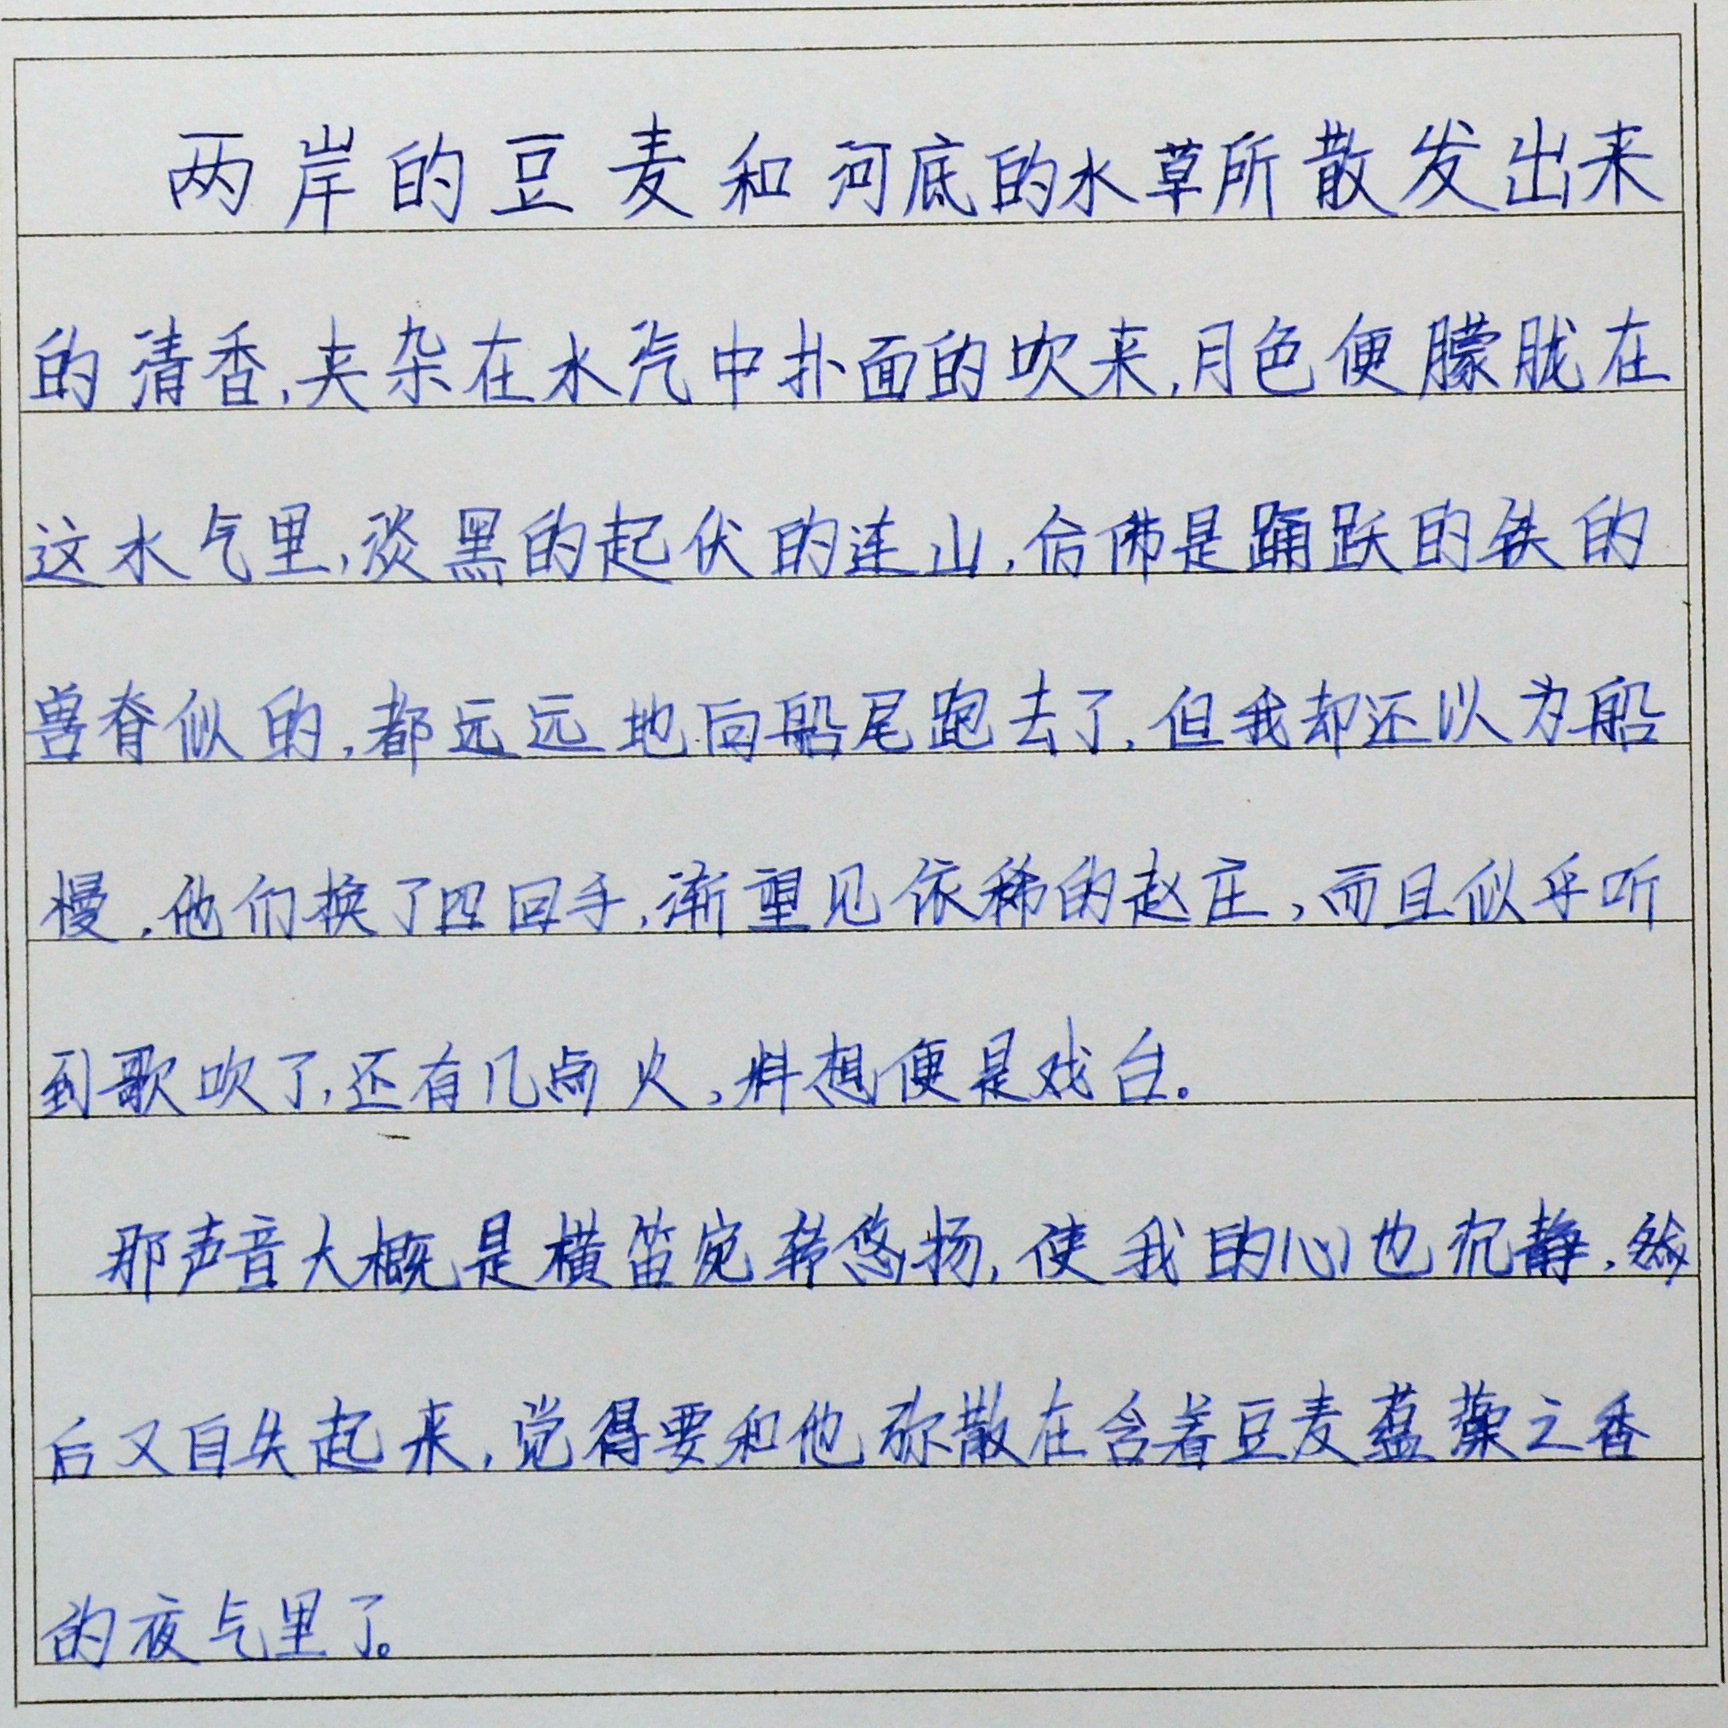 两岸的豆麦和河底的水草所散发出来
的清香,夹杂在水汽中扑面的吹来,月色便朦胧在
这水气里,淡黑的起伏的连山,仿佛是踊跃的铁的
兽脊似的,都远远地向船尾跑去了,但我却还以为船
慢,他们换了四回手,渐望见依稀的赵庄,而且似乎听
到歌吹了,还有几点火,料想便是戏台。
那声音大概是横笛宛转悠扬,使我的心也沉静,然
后又自失起来,觉得要和他弥散在含着豆麦蕴藻之香
的夜气里了。